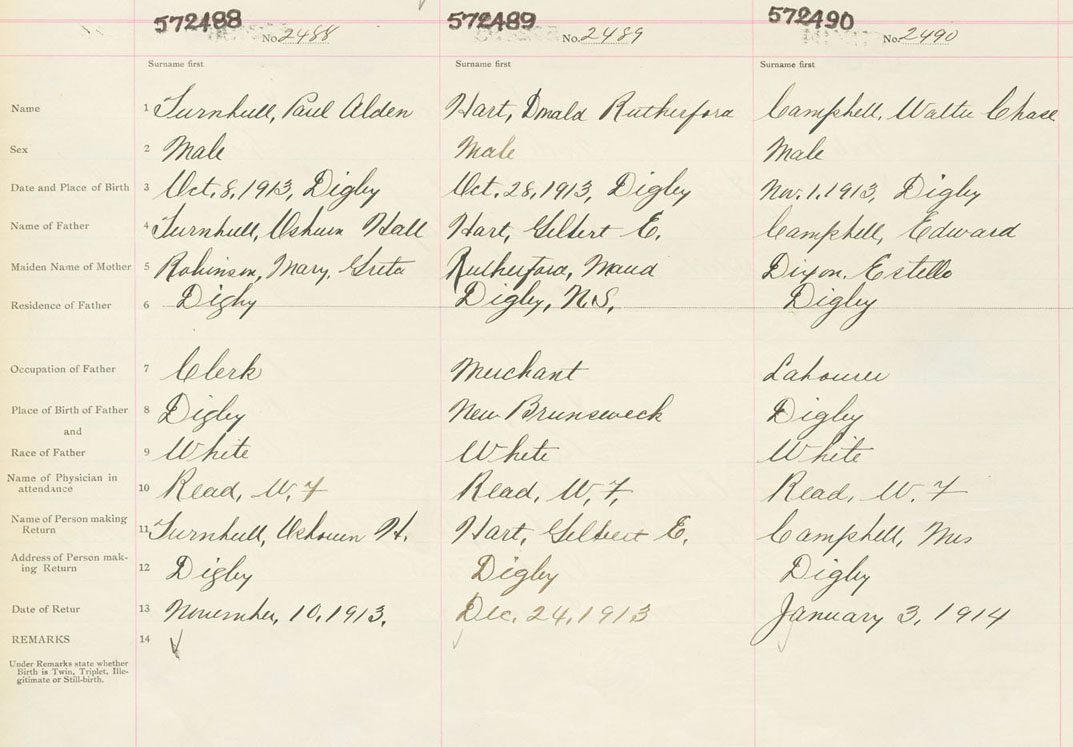 572488 572489 572490
No. 2488 No. 2489 No. 2490
Surname first Surname first Surname first
Name 1 Turnbull, Paul Alden Hart, Donald Rutherford Campbell, Walter Chase
Sex 2 Male Male Male
Date and Place of Birth 3 Oct. 8, 1913, Digby Oct. 28, 1913, Digby Nov. 1. 1913, Digby
Name of Father 4 Turnbull, Hall Hart, Gilbert E. Campbell, Edward
Maiden Name of Mother 5 Robinson, Mary, Greta Rutherford, Maud Dixon, Estello
Residence of Father 6 Digby Digby, N.S. Digby
Occupation of Father 7 Clerk Merchant Labourer
Place of Birth of Father 8 Digby New Brunsweck Digby
and
Race of Father 9 White White White
Name of Physician in
attendance 10 Read, W. F Read, W. F. Read, W. F
Name of Person making
Return 11 Turnbull, H. Hart, Gilbert E. Campbell, Mrs
Address of Person mak-
ing Return 12 Digby Digby Digby
Date of Retur 13 November, 10, 1913. Dec. 24, 1913 January 3, 1914
REMARKS 14
Under Remarks state whether
Birth is Twin, Triplet, Ille-
gitimate or Still-birth.